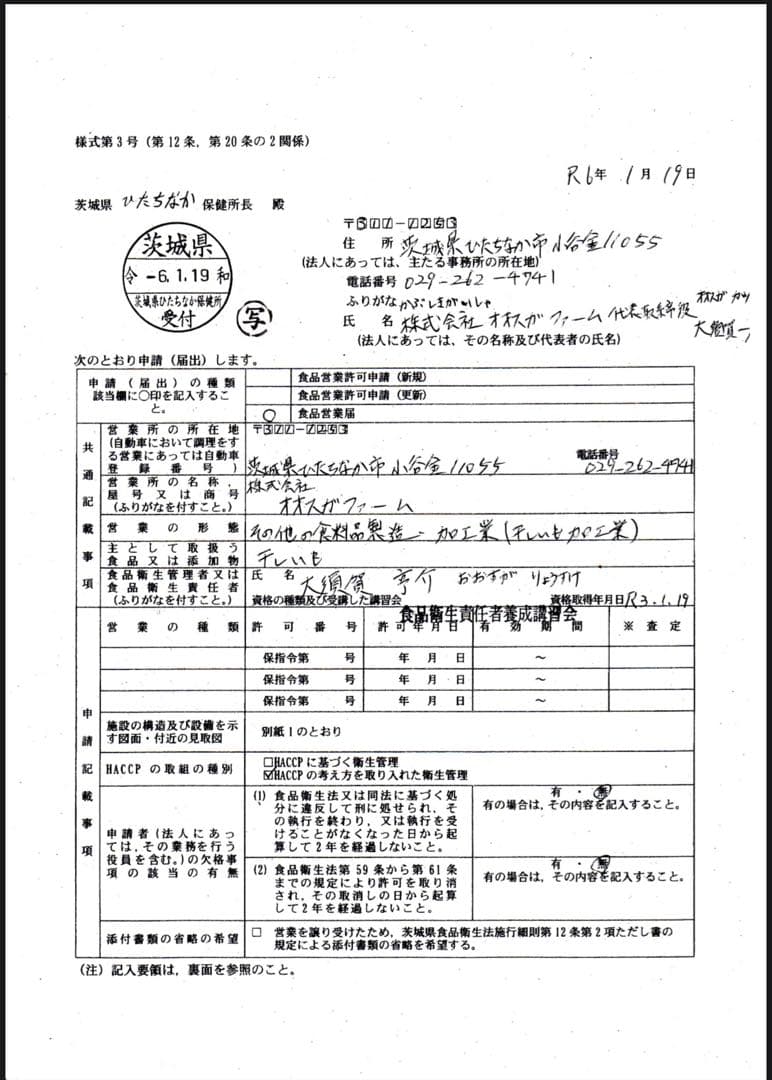 様式第3号(第12条,第20条の2関係)
R6年 1月 19日
茨城県 ひたちなか 保健所長 殿
茨城県
令 -6.1.19 和
茨城県ひたちなか保健所
受付
写
〒311-1253
住所 茨城県ひたちなか市小谷金11055
(法人にあっては、主たる事務所の所在地)
電話番号 029-262-4741
ふりがな かぶしきがいしゃ
氏名 株式会社 オオスガファーム 代表取締役
(法人にあっては、その名称及び代表者の氏名)
次のとおり申請(届出)します。
申請(届出)の種類
該当欄に○印を記入するこ
と。
食品営業許可申請(新規)
食品営業許可申請(更新)
○ 食品営業届
共通記載事項
営業所の所在地
(自動車において調理をす
る営業にあっては自動車
登録番号)
〒311-1253
茨城県ひたちなか市小谷金11055
電話番号
029-262-4741
営業所の名称,
屋号又は商号
(ふりがなを付すこと。)
株式会社
オオスガファーム
営業の形態 その他の食料品製造・加工業(干しいも加工業)
主として取扱う
食品又は添加物
干しいも
食品衛生管理者又は
食品衛生責任者
(ふりがなを付すこと。)
氏名 大須賀 亨介 おおすが りょうすけ
資格の種類及び受講した講習会
食品衛生責任者養成講習会
資格取得年月日 R3.1.19
申請記載事項
営業の種類 許可番号 許可年月日 有効期間 ※査定
保指令第 号 年 月 日 ~
保指令第 号 年 月 日 ~
保指令第 号 年 月 日 ~
施設の構造及び設備を示
す図面・付近の見取図
別紙1のとおり
HACCPの取組の種別
□HACCPに基づく衛生管理
☑HACCPの考え方を取り入れた衛生管理
申請者(法人にあっ
ては,その業務を行う
役員を含む。)の欠格事
項の該当の有無
(1) 食品衛生法又は同法に基づく処
分に違反して刑に処せられ,そ
の執行を終わり,又は執行を受
けることがなくなった日から起
算して2年を経過しないこと。
有・無
有の場合は,その内容を記入すること。
(2) 食品衛生法第59条から第61条
までの規定により許可を取り消
され,その取消しの日から起算
して2年を経過しないこと。
有・無
有の場合は,その内容を記入すること。
添付書類の省略の希望
□ 営業を譲り受けたため,茨城県食品衛生法施行細則第12条第2項ただし書の
規定による添付書類の省略を希望する。
(注)記入要領は,裏面を参照のこと。